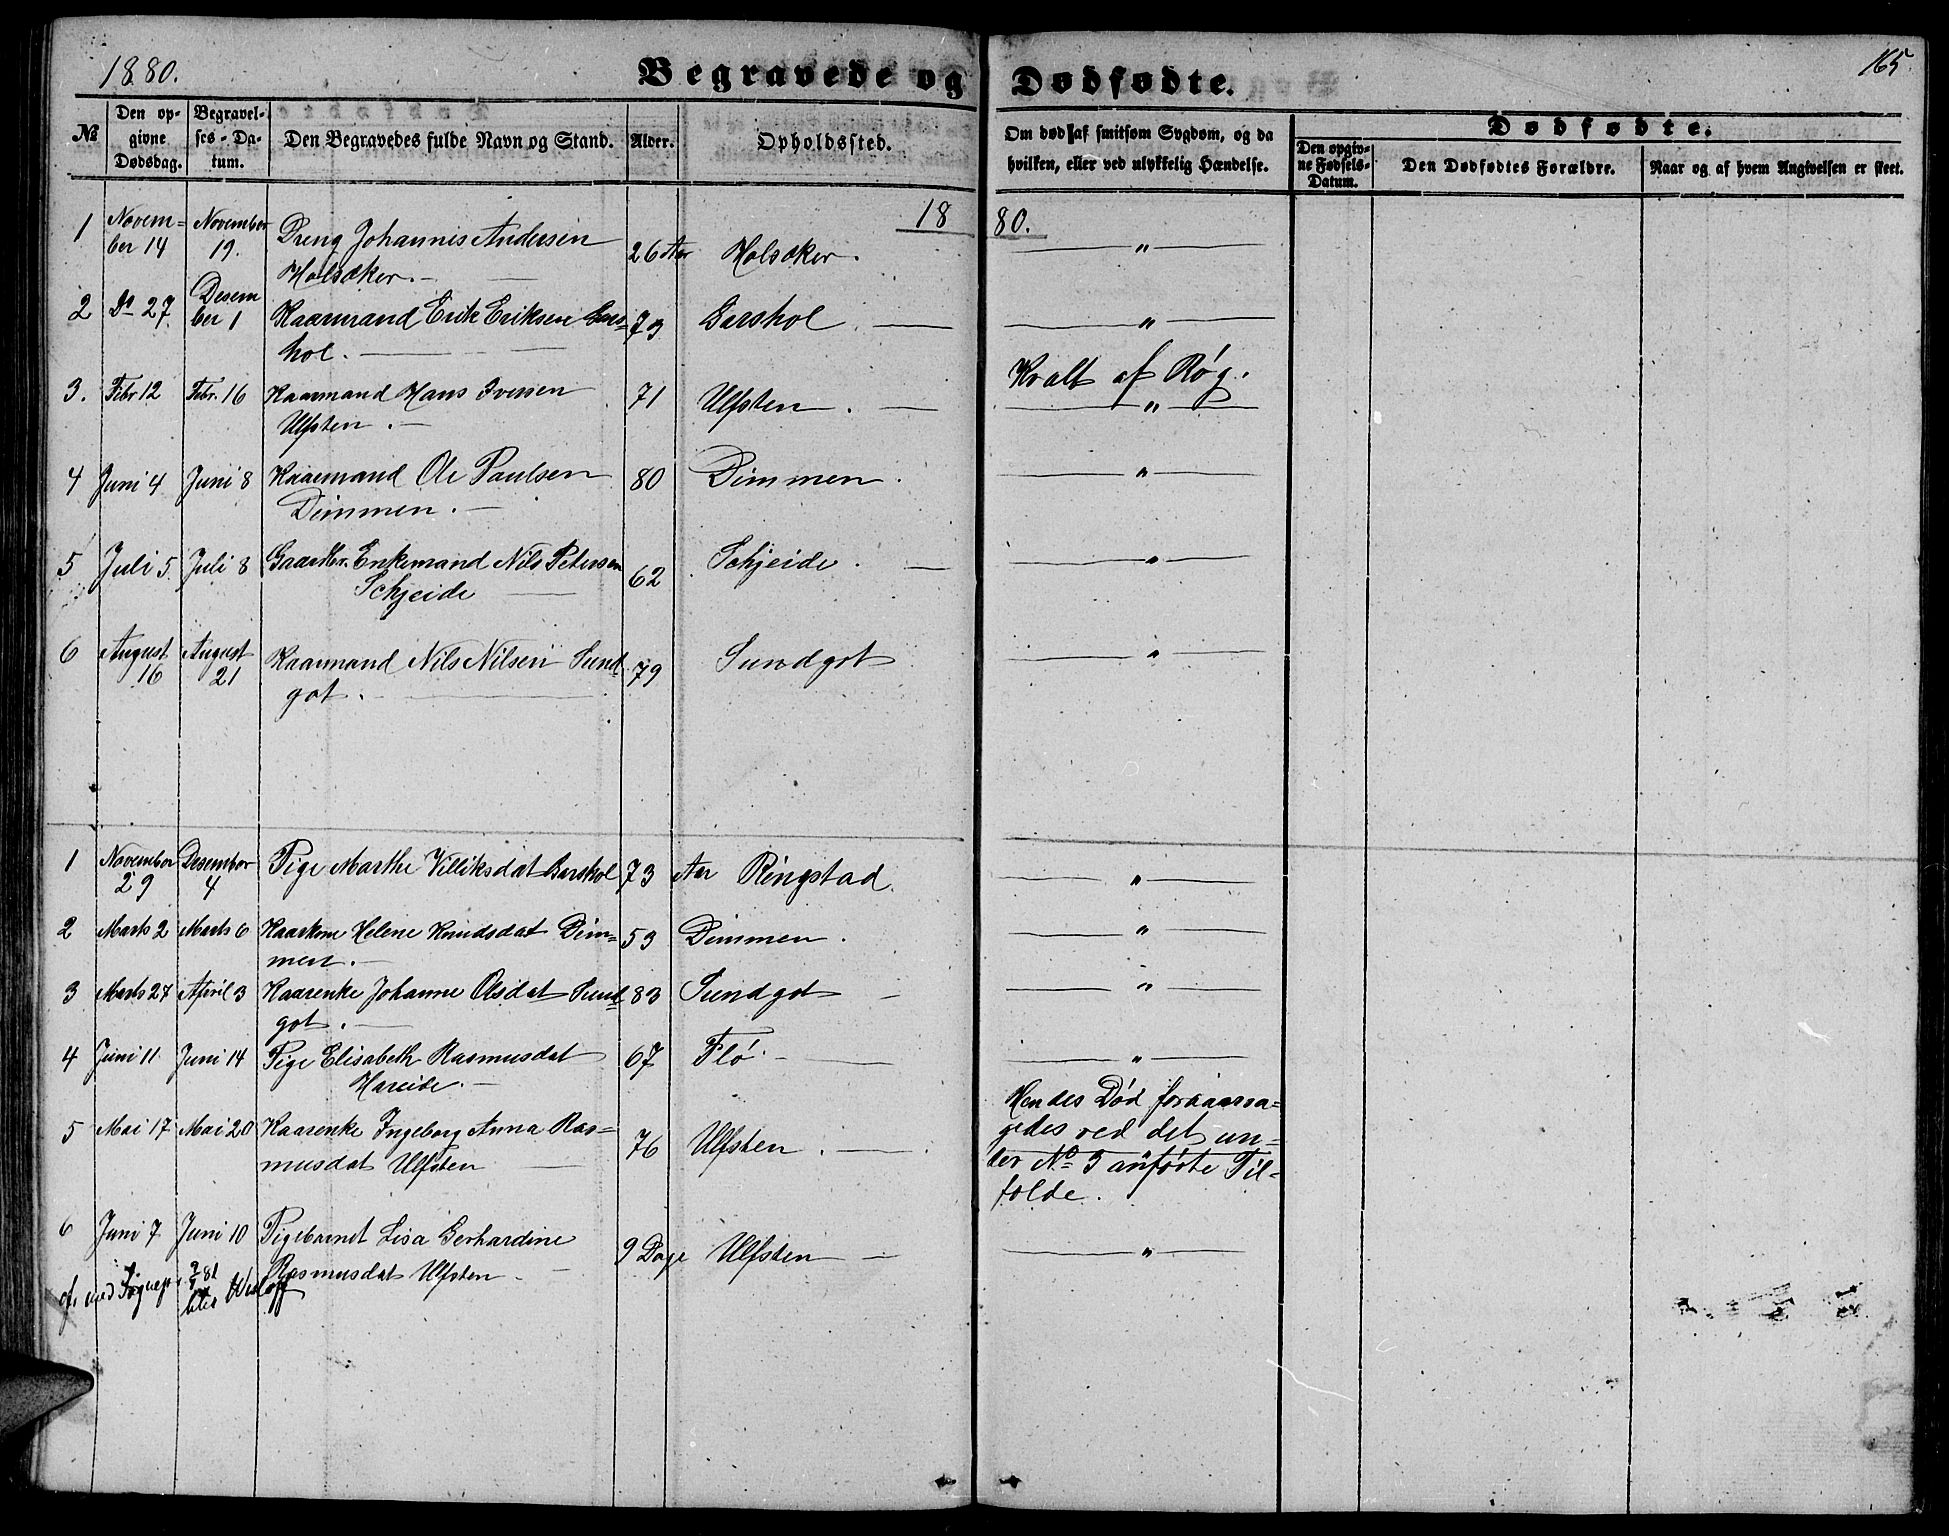 1880.
Begravede og Dødfødte.
165
№
Den opgivne Dødsdag.
Begravelses-Datum.
Den Begravedes fulde Navn og Stand.
Alder.
Opholdssted.
Om død af smitsom Sygdom, og da hvilken, eller ved ulykkelig Hændelse.
Dødfødte.
Den opgivne Fødsels-Datum.
Den Dødfødtes Forældre.
Naar og af hvem Angivelsen er skeet.
1880.
1 November 14 November 19. Dreng Johannis Andersen 26 Aar Holsæker. "
Holsæker.
2 Do 27 Desember 1 Kaarmand Erik Eriksen Gars= 73 Garshol. "
hol.
3. Febr 12 Febr. 16 Kaarmand Hans Iversen 71 Ulfsten. Kvalt af Røg.
Ulfsten. "
4 Juni 4 Juni 8 Kaarmand Ole Paulsen 80 Dimmen. "
Dimmen.
5 Juli 5. Juli 8 Gaardbr. Enkemand Nils Petersen 62 Schjeide. "
Schjeide
6 August 16 August 21 Kaarmand Nils Nilsen Sund= 79 Sundgot "
got.
1 November 29 Desember 4 Pige Marthe Villiksdat Garshol 73 Aar Ringstad. "
2 Marts 2 Marts 6 Kaarkone Helene Knudsdat Dim= 53 Dimmen. "
men.
3 Marts 27 April 3 Kaarenke Johanne Olsdat Sund= 83 Sundgot "
got.
4 Juni 11. Juni 14 Pige Elisabeth Rasmusdat 67 Flø. "
Hareide.
5 Mai 17 Mai 20 Kaarenke Ingeborg Anna Ras= 76 Ulfsten. Hendes Død foraarsa=
musdat Ulfsten gedes ved det un=
der No 3 anførte Til=
fælde.
6 Juni 7 Juni 10 Pigebarnet Lisa Gerhardine 9 Dage Ulfsten "
Rasmusdat Ulfsten.
cf. med